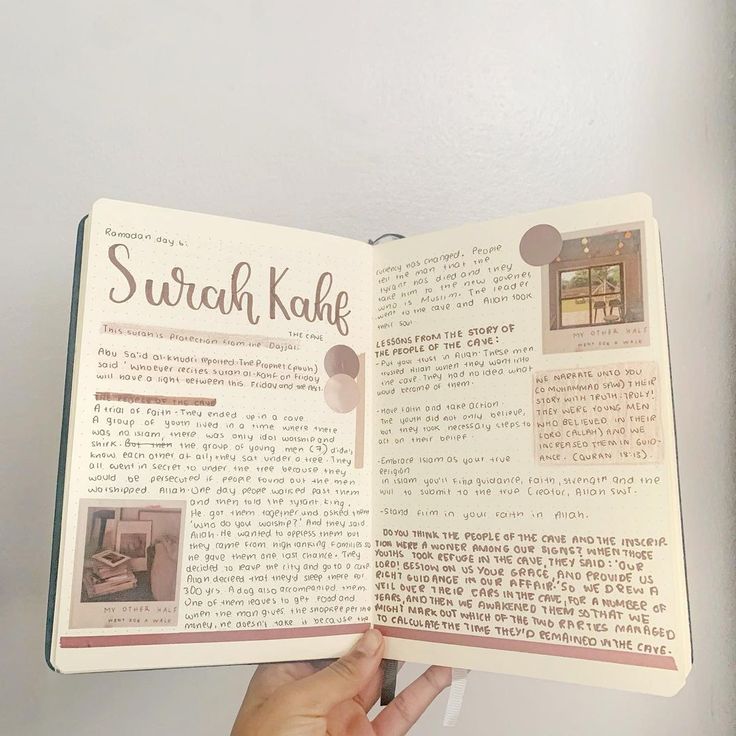 Ramadan day 6:
Surah Kahf
THE CAVE
This surah is protection from the Dajjal.
Abu Sa'id al-khudri reported: The Prophet (pbuh)
said 'Whoever recites surah al-kahf on Friday
will have a light between this Friday and the next.
THE PEOPLE OF THE CAVE
A trial of faith. They ended up in a cave.
A group of youth lived in a time where there
was no islam, there was only idol worship and
shirk. But then the group of young men (7) didn't
know each other at all, they sat under a tree. They
all went in secret to under the tree because they
would be persecuted if people found out the men
worshipped Allah. One day people walked past them
and then told the tyrant king.
He got them together and asked them
'who do you worship?' And they said
Allah. He wanted to oppress them but
they came from high ranking families so
he gave them one last chance. They
decided to leave the city and go to a cave.
Allah decreed that they'd sleep there for
300 yrs. A dog also accompanied them.
One of them leaves to get food and
when the man gives the shopkeeper the
money, he doesn't take it because the
MY OTHER HALF
WENT FOR A WALK
currency has changed. People
tell the man that the
tyrant has died and they
take him to the new governer,
who is Muslim. The leader
went to the cave and Allah took
their soul
MY OTHER HALF
WENT FOR A WALK
LESSONS FROM THE STORY OF
THE PEOPLE OF THE CAVE:
- Put you trust in Allah. These men
trusted Allah when they went into
the cave. They had no idea what
would become of them.
- Have faith and take action
The youth did not only believe,
but they took necessary steps to
act on their belief.
WE NARRATE UNTO YOU
(O MUHAMMAD SAW) THEIR
STORY WITH TRUTH: TRULY!
THEY WERE YOUNG MEN
WHO BELIEVED IN THEIR
LORD (ALLAH) AND WE
INCREASED THEM IN GUID-
ANCE. (QURAN 18:13).
-Embrace Islam as your true
Religion
In islam you'll find guidance, faith, strength and the
will to submit to the true Creator, Allah SWT.
-Stand firm in your faith in Allah.
DO YOU THINK THE PEOPLE OF THE CAVE AND THE INSCRIP-
TION WERE A WONER AMONG OUR SIGNS? WHEN THOSE
YOUTHS TOOK REFUGE IN THE CAVE, THEY SAID: 'OUR
LORD! BESTOW ON US YOUR GRACE, AND PROVIDE US
RIGHT GUIDANCE IN OUR AFFAIR.' SO WE DREW A
VEIL OVER THEIR EARS IN THE CAVE, FOR A NUMBER OF
YEARS, AND THEN WE AWAKENED THEM SO THAT WE
MIGHT MARK OUT WHICH OF THE TWO PARTIES MANAGED
TO CALCULATE THE TIME THEY'D REMAINED IN THE CAVE.